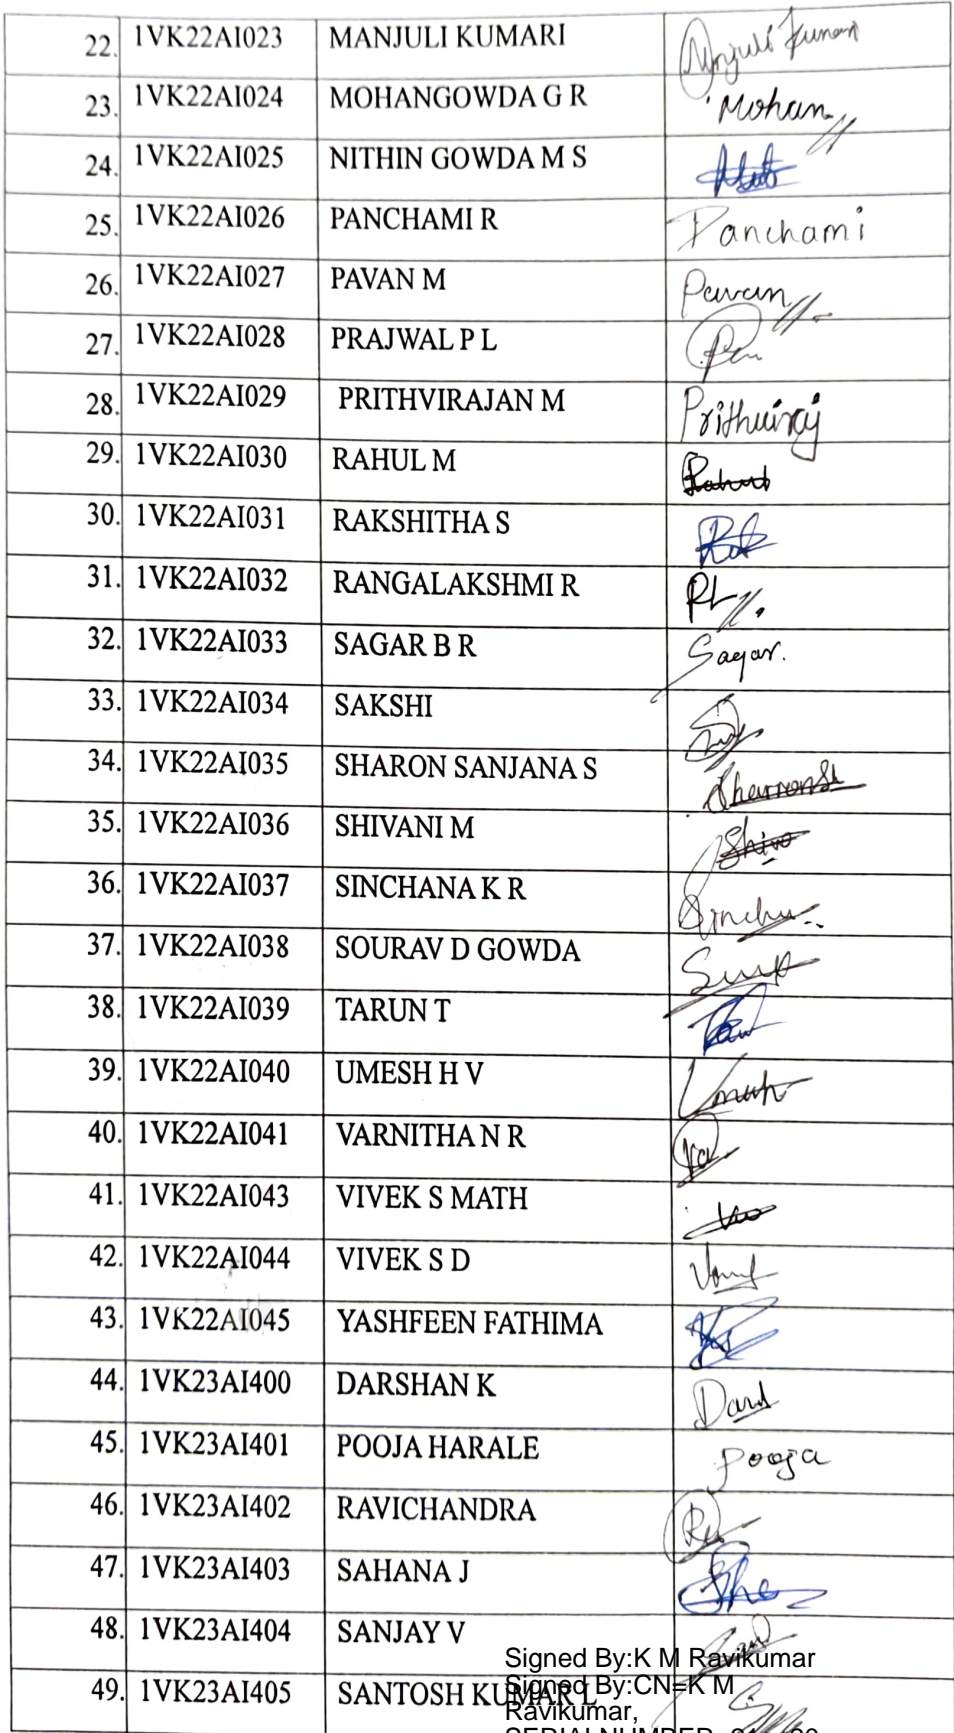 22. 1VK22AI023 MANJULI KUMARI Manjuli Kumari
23. 1VK22AI024 MOHANGOWDA G R Mohan
24. 1VK22AI025 NITHIN GOWDA M S
25. 1VK22AI026 PANCHAMI R Panchami
26. 1VK22AI027 PAVAN M Pavan
27. 1VK22AI028 PRAJWAL P L
28. 1VK22AI029 PRITHVIRAJAN M Prithviraj
29. 1VK22AI030 RAHUL M Rahul
30. 1VK22AI031 RAKSHITHA S
31. 1VK22AI032 RANGALAKSHMI R RL
32. 1VK22AI033 SAGAR B R Sagar.
33. 1VK22AI034 SAKSHI
34. 1VK22AI035 SHARON SANJANA S
35. 1VK22AI036 SHIVANI M
36. 1VK22AI037 SINCHANA K R
37. 1VK22AI038 SOURAV D GOWDA
38. 1VK22AI039 TARUN T
39. 1VK22AI040 UMESH H V
40. 1VK22AI041 VARNITHA N R
41. 1VK22AI043 VIVEK S MATH
42. 1VK22AI044 VIVEK S D
43. 1VK22AI045 YASHFEEN FATHIMA
44. 1VK23AI400 DARSHAN K
45. 1VK23AI401 POOJA HARALE Pooja
46. 1VK23AI402 RAVICHANDRA
47. 1VK23AI403 SAHANA J
48. 1VK23AI404 SANJAY V
Signed By:K M Ravikumar
49. 1VK23AI405 SANTOSH KUMAR L
Signed By:CN=K M
Ravikumar,